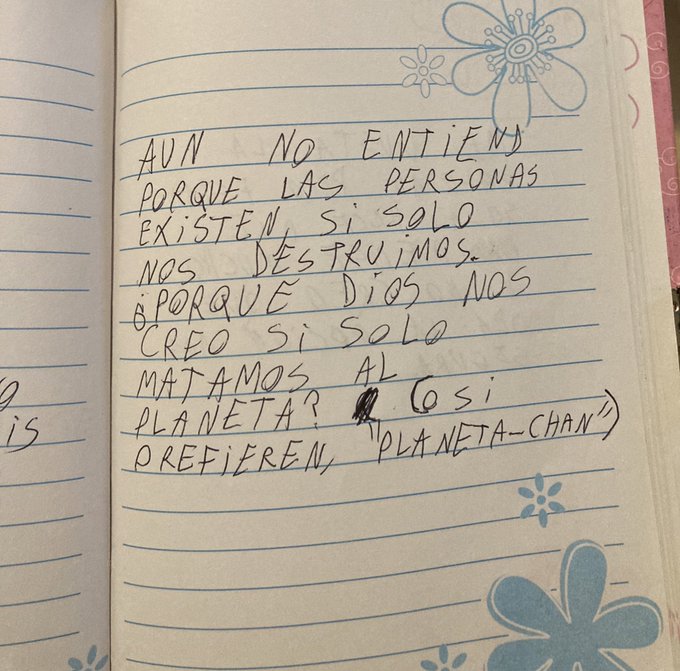 AUN NO ENTIEND
PORQUE LAS PERSONAS
EXISTEN, SI SOLO
NOS DESTRUIMOS.
¿PORQUE DIOS NOS
CREO SI SOLO
MATAMOS AL
PLANETA? (O SI
PREFIEREN, "PLANETA-CHAN")
is